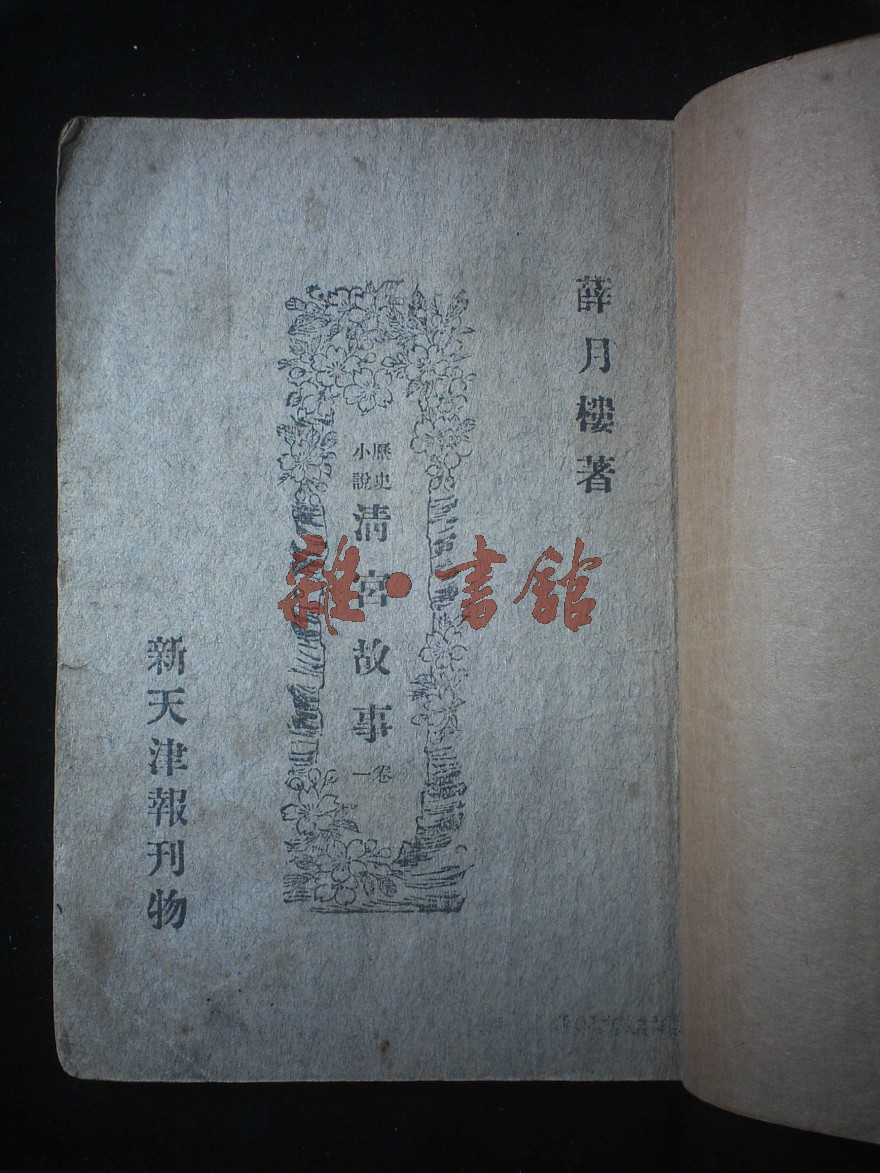 薛月樓著
歷史小說 清宮故事 卷一
新天津報刊物
雜·書館